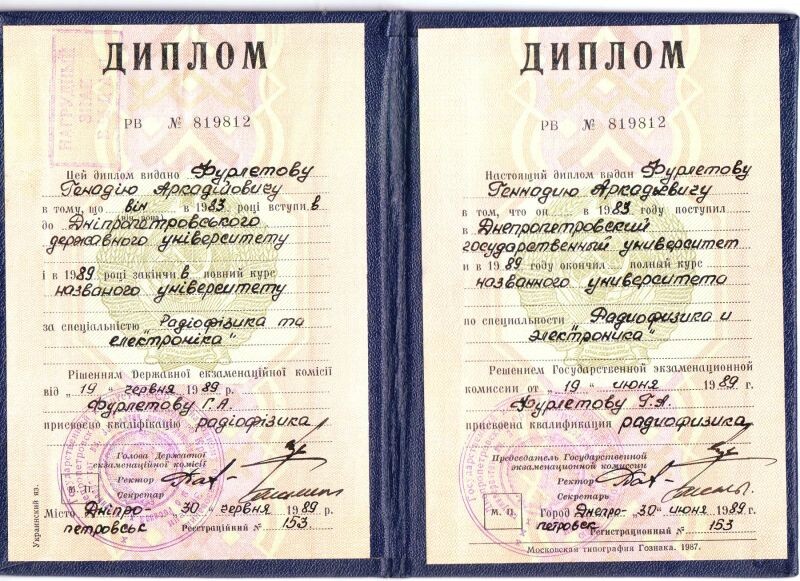 ДИПЛОМ
НАГРУДНЫЙ
ЗНАК
РВ № 819812
Цей диплом видано Фурлетову
Генадію Аркадійовичу
в тому, що він в 1983 році вступив
(він, вона)
до Дніпропетровського
державного університету
і в 1989 році закінчив повний курс
названого університету
за спеціальністю „Радіофізика та
електроніка"
Рішенням Державної екзаменаційної комісії
від „19" червня 1989 р.
Фурлетову Г.А.
присвоєно кваліфікацію радіофізика
Голова Державної
екзаменаційної комісії
Ректор
Секретар
М. П.
Місто Дніпро- „30" червня 1989 р.
петровськ Реєстраційний № 153
Украинский яз.
ДИПЛОМ
РВ № 819812
Настоящий диплом выдан Фурлетову
Геннадию Аркадьевичу
в том, что он в 1983 году поступил
в Днепропетровский
государственный университет
и в 1989 году окончил полный курс
названного университета
по специальности „Радиофизика и
электроника"
Решением Государственной экзаменационной
комиссии от „19" июня 1989 г.
Фурлетову Г.А.
присвоена квалификация радиофизика
Председатель Государственной
экзаменационной комиссии
Ректор
Секретарь
М. П.
Город Днепро- „30" июня 1989 г.
петровск Регистрационный № 153
Московская типография Гознака. 1987.